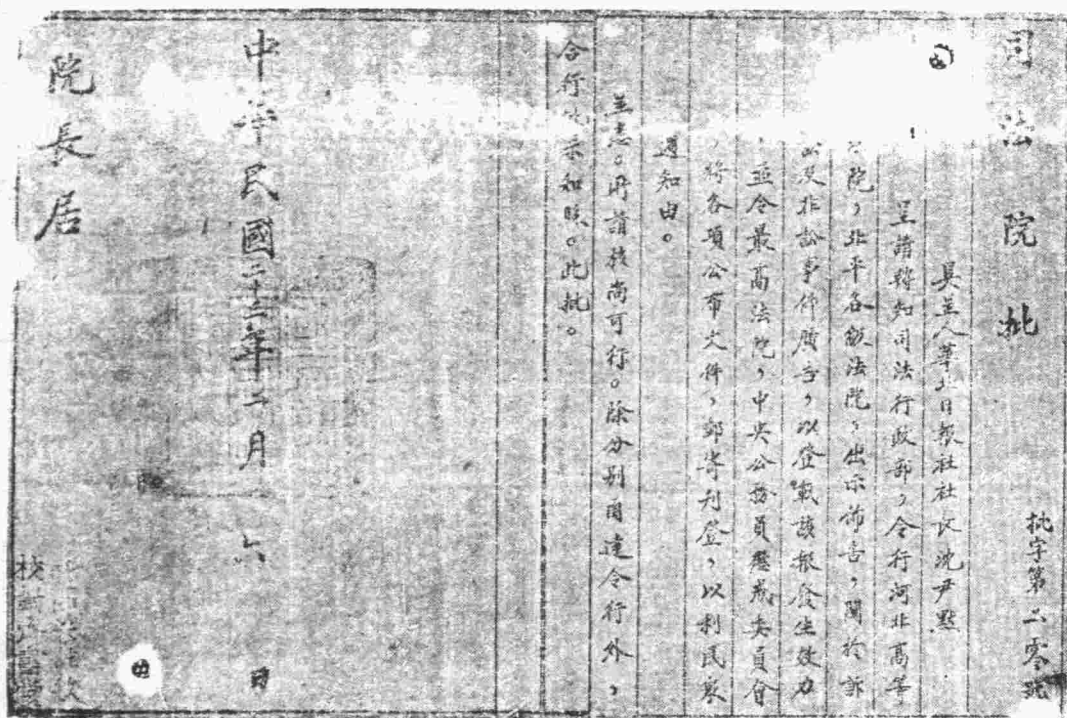 司法院批
批字第二零號
具呈人華北日報社社長沈尹默
呈請轉知司法行政部，令行河北高等
院，北平各級法院，出示佈告，關於訴
及非訟事件廣告，以登載該報發生效力
，並令最高法院，中央公務員懲戒委員會
，將各項公布文件，郵寄刊登，以利民眾
週知由。
呈悉。所請核尚可行。除分別函達令行外，
合行批示知照。此批。
中華民國二十二年十二月六日
院長居
校對